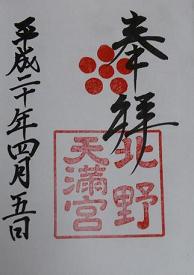 奉拝
北野
天満宮
平成二十年四月五日